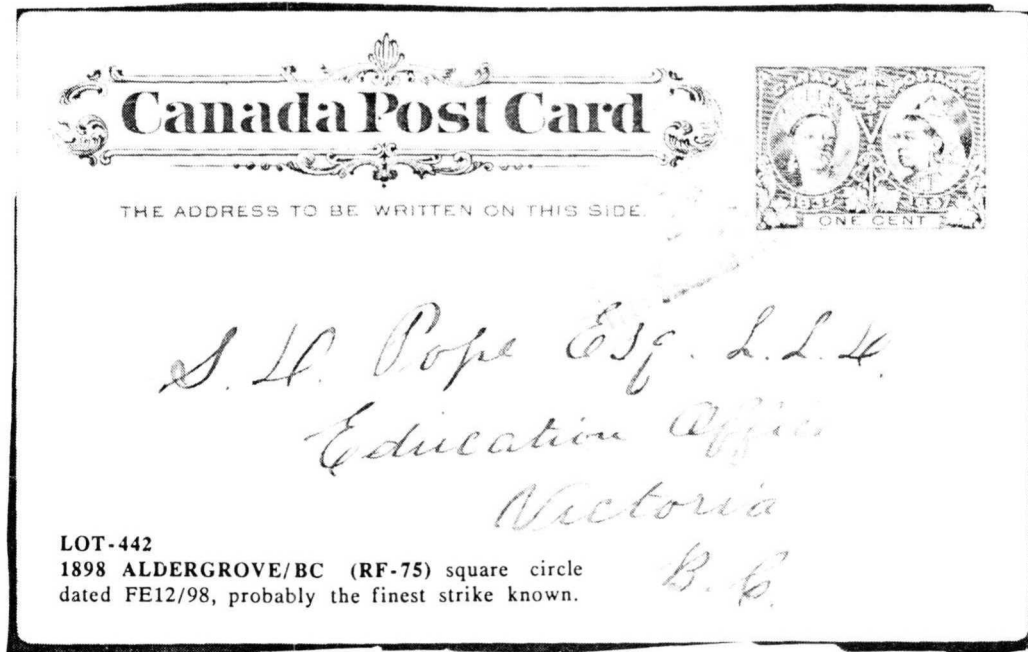 Canada Post Card
THE ADDRESS TO BE WRITTEN ON THIS SIDE.
CANADA POSTAGE
ONE CENT
S. D. Pope Esq. L.L.D.
Education Office
Victoria
B.C.
LOT-442
1898 ALDERGROVE/BC (RF-75) square circle
dated FE12/98, probably the finest strike known.